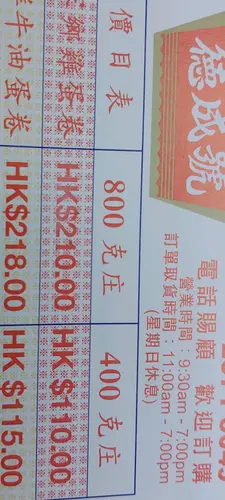 德成號
電話賜顧 歡迎訂購
營業時間：9:30am - 7:00pm
訂單取貨時間：11:00am - 7:00pm
(星期日休息)
價目表 800克庄 400克庄
雞蛋卷 HK$210.00 HK$110.00
牛油蛋卷 HK$218.00 HK$115.00